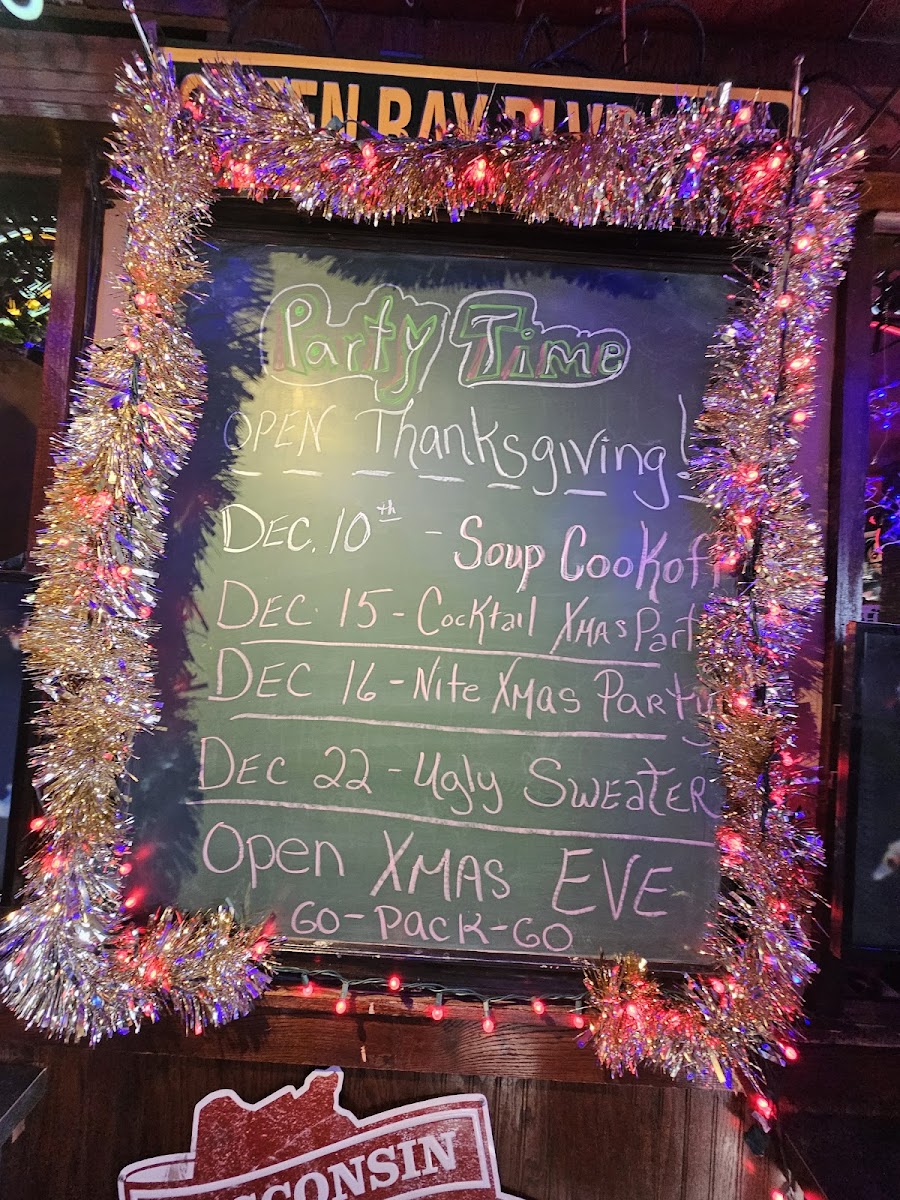 BAY BLVD
Party Time
OPEN Thanksgiving!
DEC. 10th - Soup Cookof
DEC. 15 - Cocktail XMAS Part
DEC 16 - Nite XMAS Party
DEC 22 - Ugly SWEATER
Open XMAS EVE
GO-PACK-GO
WISCONSIN